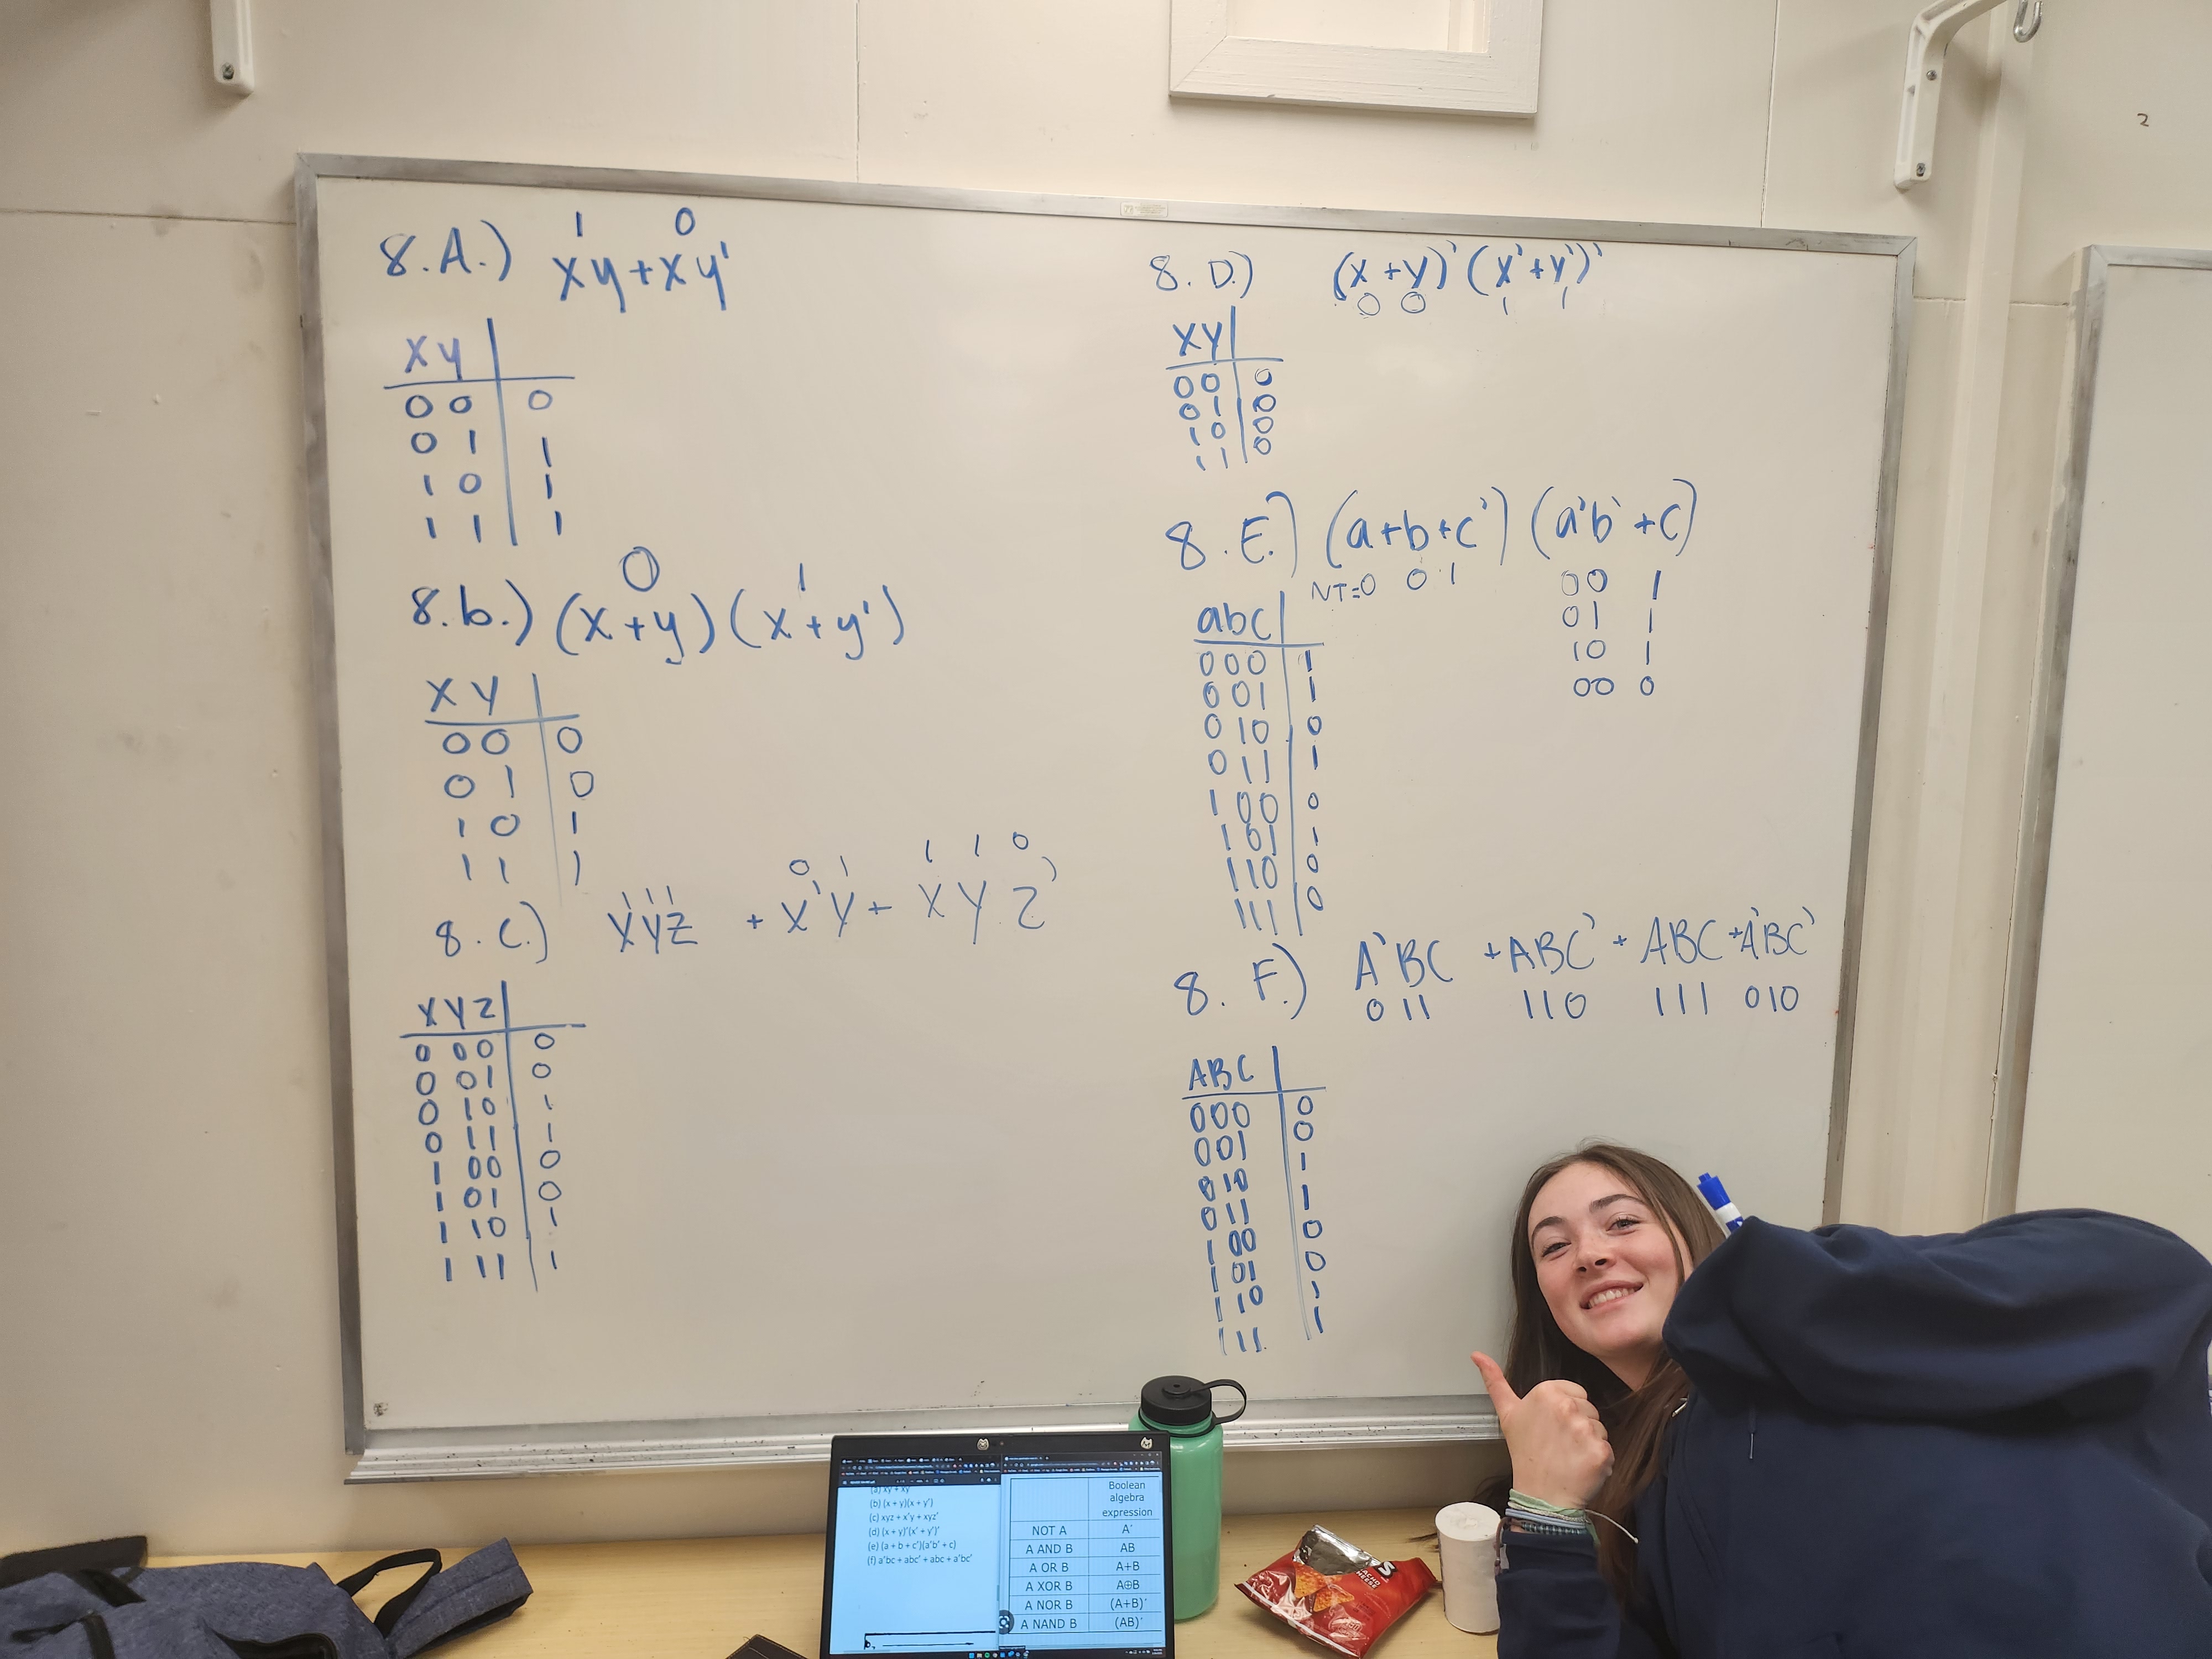 8.A.) xy+xy'
1 0
X Y
0 0 0
0 1 1
1 0 1
1 1 1
8.b.) (x+y)(x+y')
0 1
X Y
0 0 0
0 1 0
1 0 1
1 1 1
8.C.) XYZ + X'Y + XYZ'
1 1 1 0 1 1 1 0
X Y Z
0 0 0 0
0 0 1 0
0 1 0 1
0 1 1 1
1 0 0 0
1 0 1 0
1 1 0 1
1 1 1 1
8.D.) (x+y)'(x'+y')'
0 0 1 1
XY
0 0 0
0 1 0
1 0 0
1 1 0
8.E.) (a+b+c')(a'b'+c)
NT=0 0 1
00 1
01 1
10 1
00 0
abc
000 1
001 1
010 0
011 1
100 0
101 1
110 0
111 0
8.F.) A'BC +ABC' + ABC +A'BC'
011 110 111 010
ABC
000 0
001 0
010 1
011 1
100 0
101 0
110 1
111 1
2
(a) xy + xy'
(b) (x + y)(x + y')
(c) xyz + x'y + xyz'
(d) (x + y)'(x' + y')'
(e) (a + b + c')(a'b' + c)
(f) a'bc + abc' + abc + a'bc'
Boolean
algebra
expression
NOT A A'
A AND B AB
A OR B A+B
A XOR B A⊕B
A NOR B (A+B)'
A NAND B (AB)'
NACHO
CHEESE